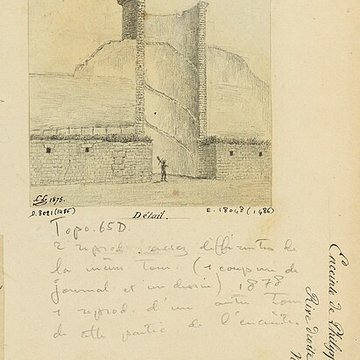 1875.
D. 8021 (1486)
Détail.
E. 18048 (1486)
Topo. 65D.
2 reprod. assez différentes de
la même Tour. (1 coupure de
journal et un dessin) 1878
1 reprod. d'un autre Tour
de cette partie de l'enceinte
Enceinte de Philipp
Rive droite